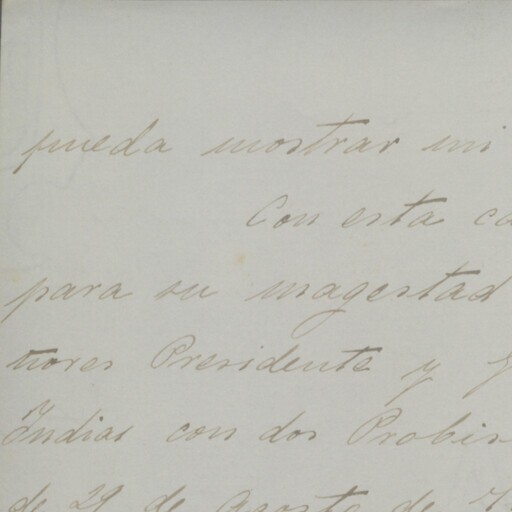 pueda mostrar mi
Con esta ca
para su magestad
ñores Presidente y
Yndias con dos Probis
de 29 de Agosto de